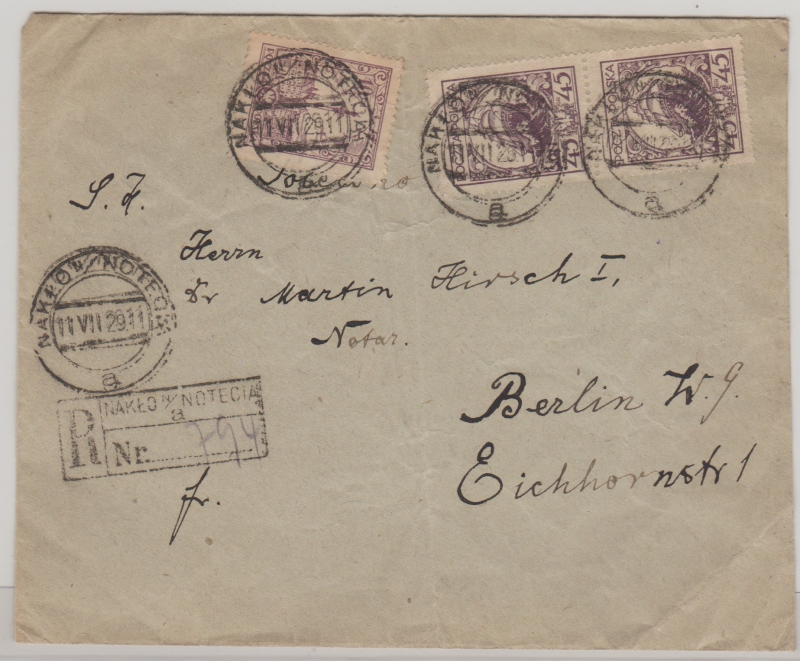 NAKŁO N/NOTECIĄ
11 VII 29.11
NAKŁO N/
VII 29.11
a
NAKŁO
a
POCZTA POLSKA
45
45
POCZTA POLSKA
45
45
S. H.
Herrn
Dr Martin Hirsch I,
Notar.
NAKŁO N/NOTECIĄ
11 VII 29.11
a
R
NAKŁO N/NOTECIĄ
a
Nr. 794
Berlin W. 9.
Eichhornstr 1
fr.